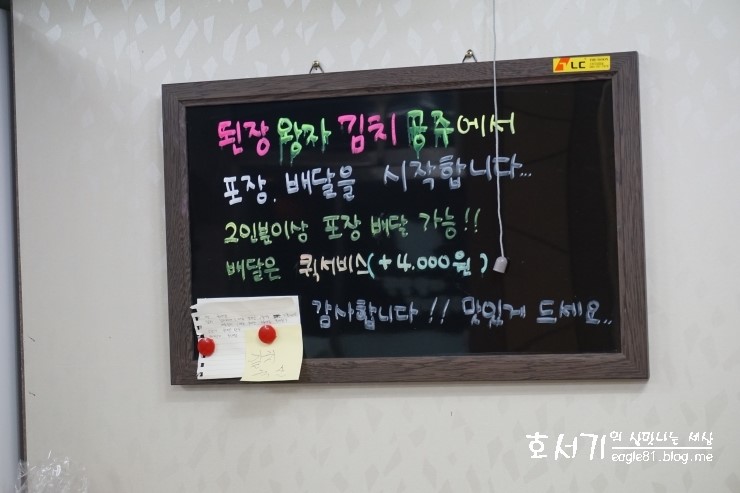 LC
된장 왕자 김치 공주에서
포장, 배달을 시작합니다...
2인분이상 포장 배달 가능!!
배달은 퀵서비스(+4.000원)
감사합니다!! 맛있게 드세요..
호서기의 살맛나는 세상
eagle81.blog.me